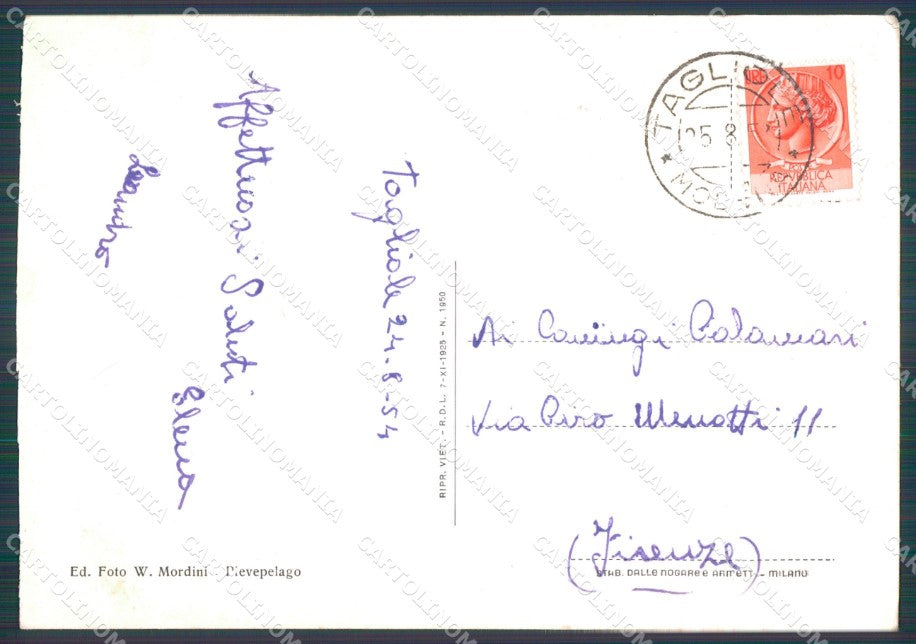 Tagliole 24-8-54
Affettuosi Saluti
Elena
Leandro
TAGLIOLE
25.8.54
MODENA
LIRE 10
REPVBBLICA
ITALIANA
Ai Coniugi Calamari
Via Ciro Menotti 11
(Firenze)
RIPR. VIET. - R.D.L. 7-XI-1925 - N. 1950
Ed. Foto W. Mordini - Pievepelago
STAB. DALLE NOGARE E ARMETTI - MILANO
CARTOLINOMANIA